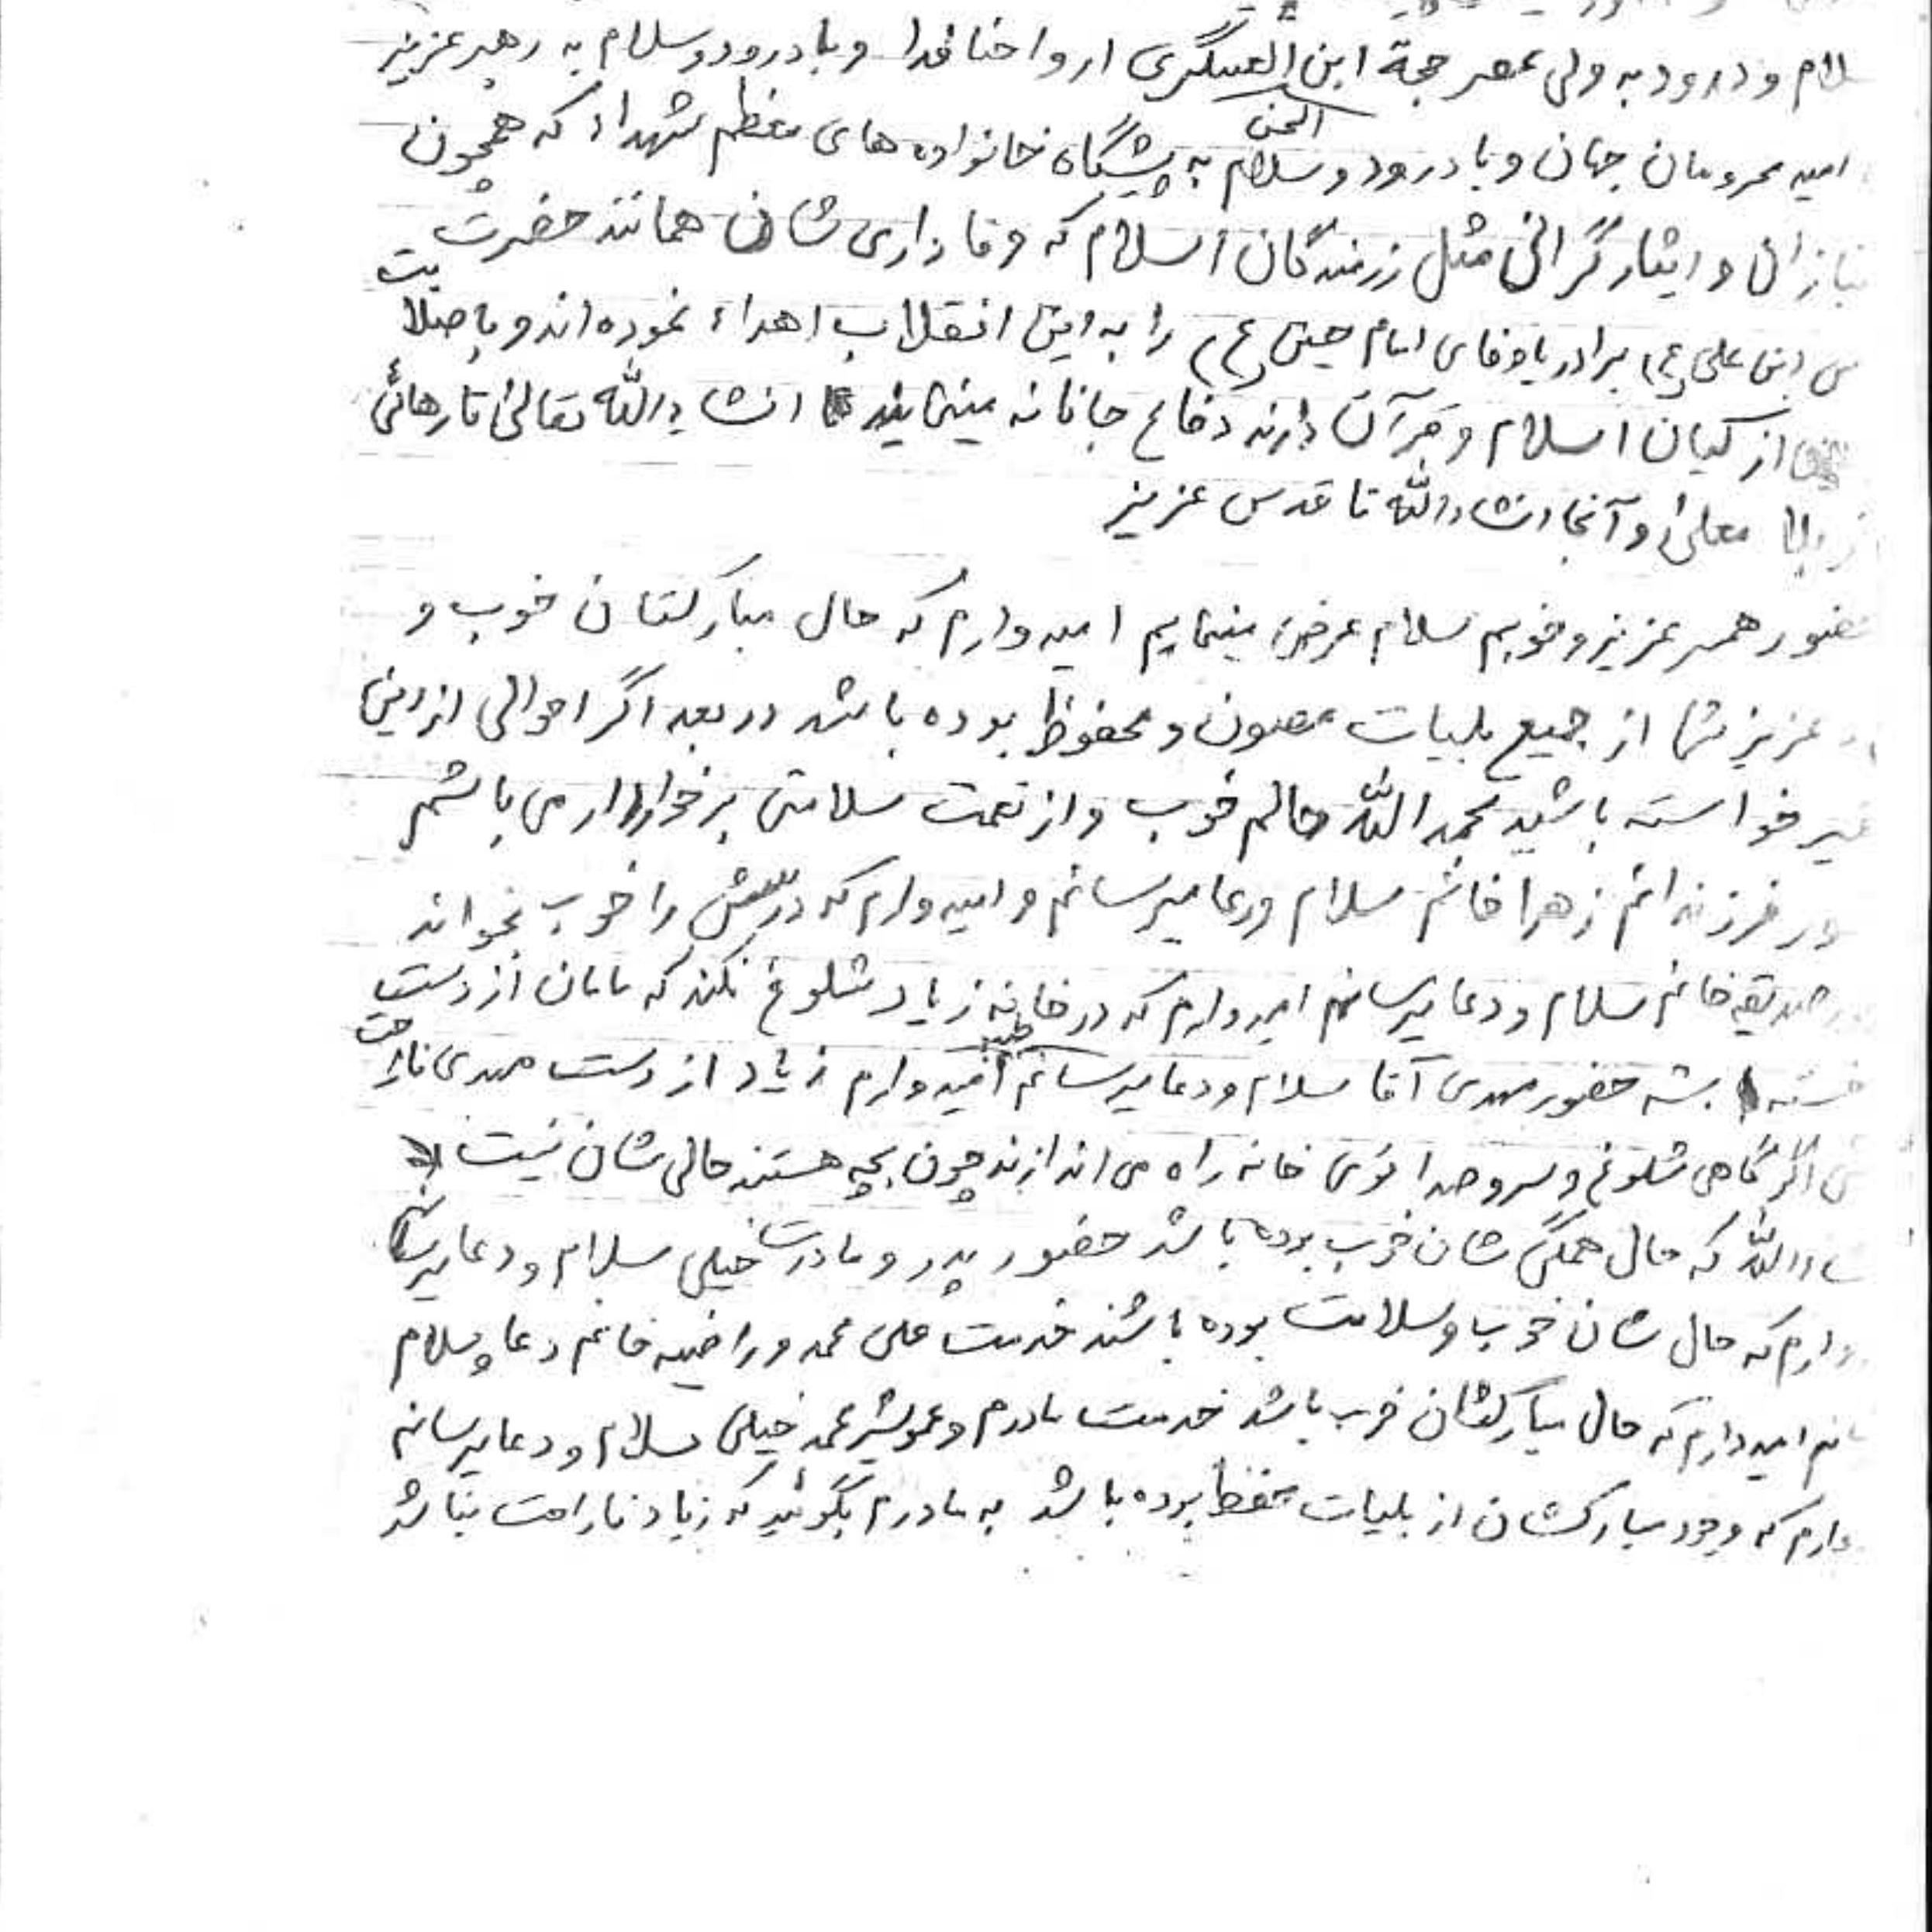 سلام و درود به ولی عصر حجة ابن الحسن العسگری ارواحنا فدا و با درود و سلام به رهبر عزیز
امید محرومان جهان و با درود و سلام به پیشگاه خانواده های معظم شهداء که همچون
و ایثارگرانی مثل رزمندگان اسلام که وفاداری شان همانند حضرت
ابن علی (ع) برادر باوفای امام حسین (ع) را به این انقلاب اهداء نموده اند و با صلابت
از کیان اسلام و قرآن دارند دفاع جانانه مینمایند انشاءالله تعالی تا رهائی
کربلا معلی و آنجا انشاءالله تا قدس عزیز
حضور همسر عزیز و خوبم سلام عرض مینمایم امیدوارم که حال مبارکتان خوب و
عزیز شما از جمیع بلیات مصون و محفوظ بوده باشد در بعد اگر احوالی از این
حقیر خواسته باشید بحمدالله حالم خوب و از نعمت سلامتی برخوردار می باشم
فرزندانم زهرا خانم سلام و دعا میرسانم و امیدوارم که درسش را خوب بخواند
صدیقه خانم سلام و دعا میرسانم امیدوارم که در خانه زیاد شلوغ نکند که مامان از دست
خسته بشه حضور مهدی آقا سلام و دعا میرسانم امیدوارم زیاد از دست مهدی ناراحت
اگر گاهی شلوغ و سر و صدا توی خانه راه می اندازند چون بچه هستند حالی شان نیست
انشاءالله که حال همگی شان خوب بوده باشد حضور پدر و مادرت خیلی سلام و دعا میرسانم
دارم که حال شان خوب و سلامت بوده باشند خدمت علی محمد و راضیه خانم دعا و سلام
امیدوارم که حال مبارکشان خوب باشد خدمت مادرم و عمو شیرمحمد خیلی سلام و دعا میرسانم
دارم که وجود مبارکشان از بلیات محفظ بوده باشد به مادرم بگوئید که زیاد ناراحت نباشد